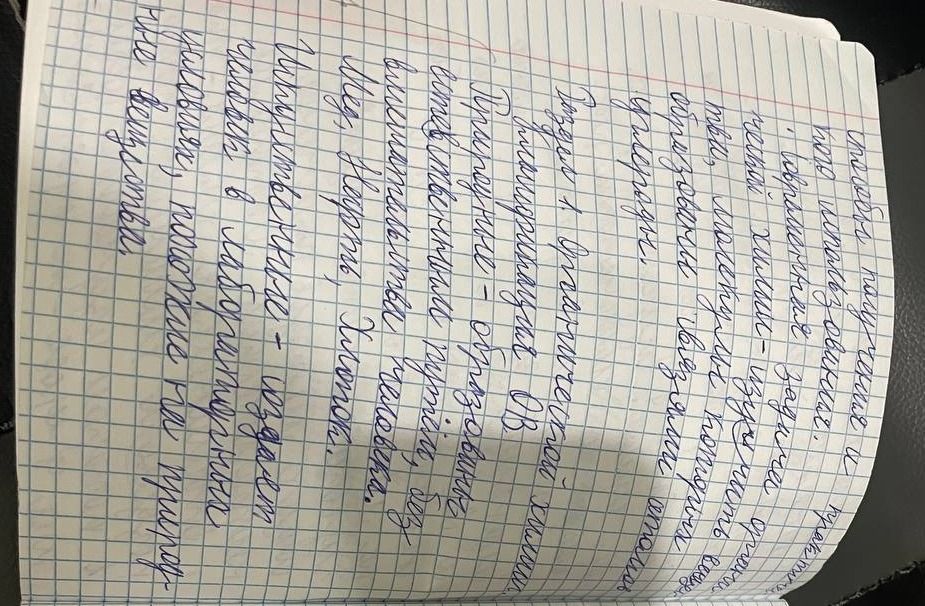 способы получение и практич.
кого использования.
Современные задачи органи
ческой химии - изучить вещес
тва, молекулы которых
образованы связями атомов
углерода.
Раздел 1 Органической химии.
Классификация ОВ
Природные - образованы
естественным путём, без
вмешательства человека.
Мёд, Нефть, Хлопок.
Искусственные - создаёт
человек в лабораторных
условиях, похожие на природ-
ные вещества.